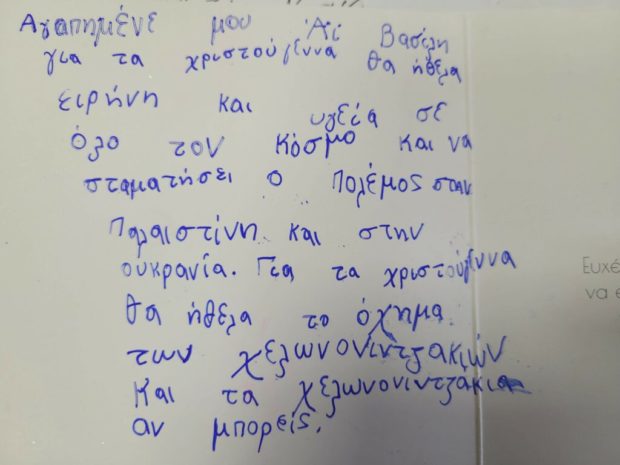 Αγαπημένε μου Άϊ Βασίλη
για τα χριστούγεννα θα ήθελα
ειρήνη και υγεία σε
όλο τον κόσμο και να
σταματήσει ο πολέμος στην
Παλαιστίνη και στην
ουκρανία. Για τα χριστούγεννα
θα ήθελα το όχημα
των χελωνονιντζακιών
και τα χελωνονιντζάκια
αν μπορείς.
Ευχέ
να ε